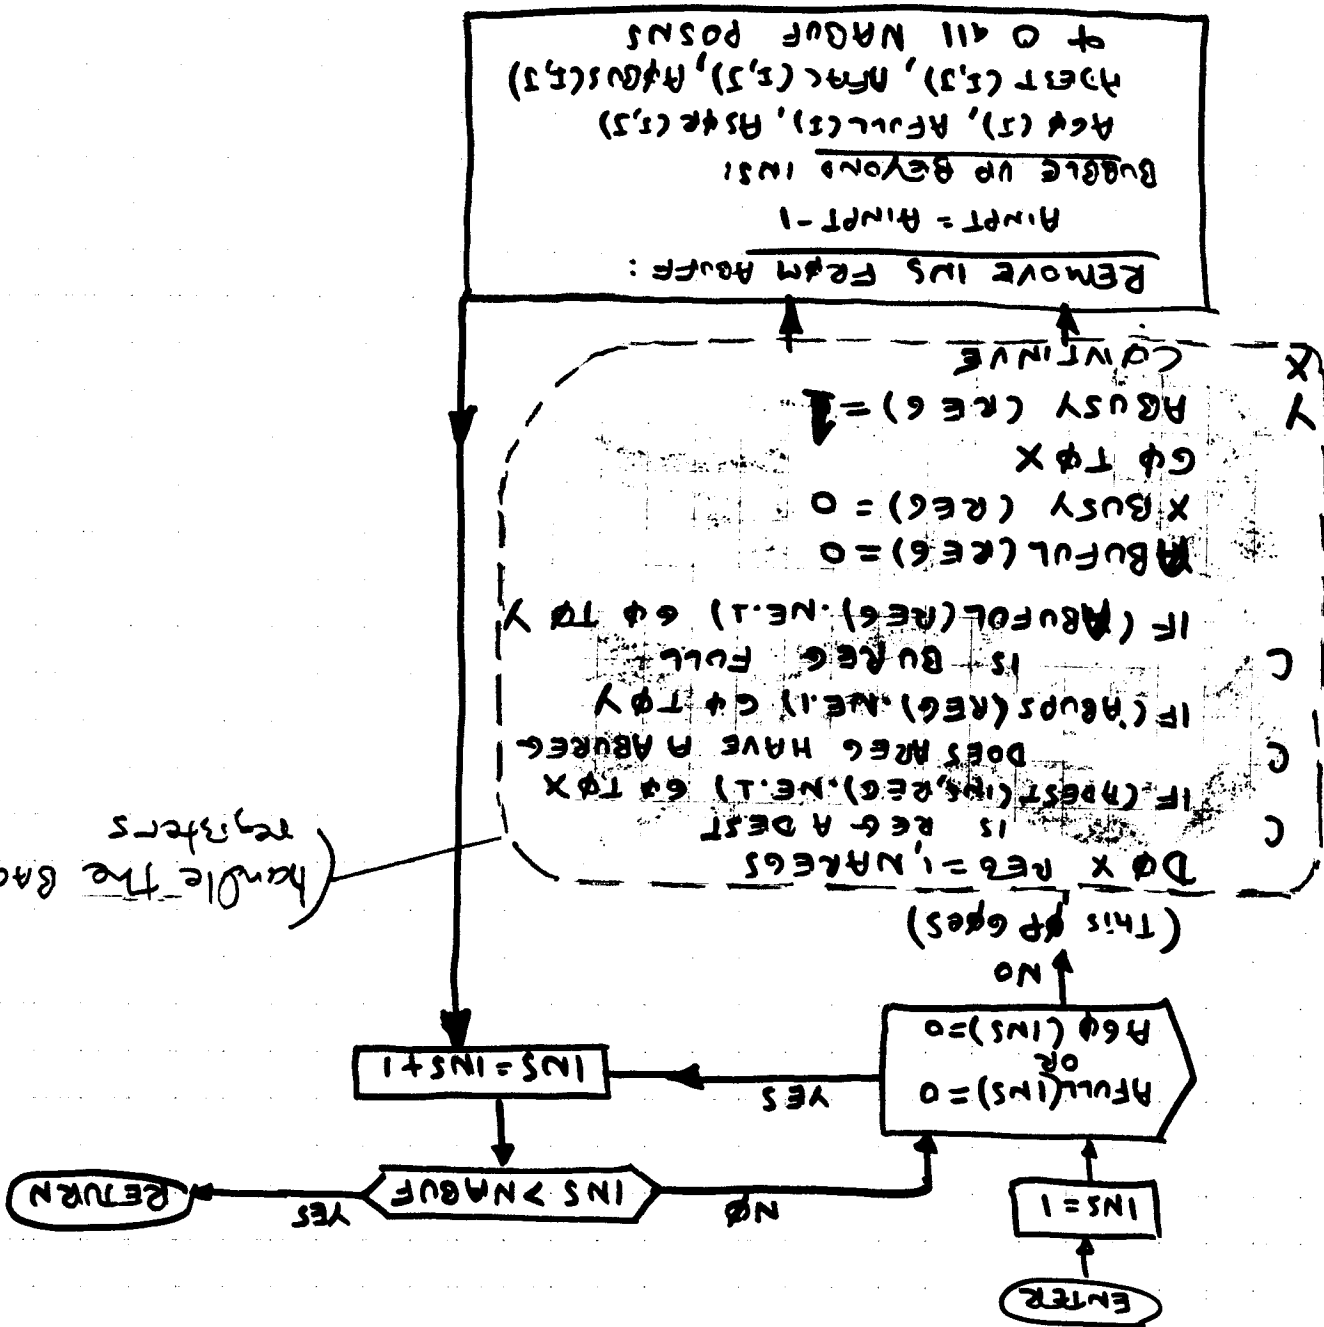 ENTER
INS=1
AFULL(INS)=0
OR
AGØ(INS)=0
YES
INS=INS+1
INS>NABUF
NØ
YES
RETURN
NO
(This ØP GØes)
DØ X REG=1,NAREGS
C IS REG A DEST
IF (ADEST(INS,REG).NE.1) GØ TØ X
C DOES AREG HAVE A ABUREG
IF(ABUPS(REG).NE.1) GØ TØ Y
C IS BUREG FULL
IF (ABUFUL(REG).NE.1) GØ TØ Y
ABUFUL(REG)=0
X BUSY (REG)=0
GØ TØ X
Y ABUSY (REG)=1
X CONTINUE
handle the
registers
REMOVE INS FRØM ABUFF:
AINPT=AINPT-1
BUBBLE UP BEYOND INS:
AGØ(I), AFULL(I), ASØR(I,J)
ADEST(I,J), AFAC(I,J), AØBUS(I,J)
& 0 all NABUF POSNS